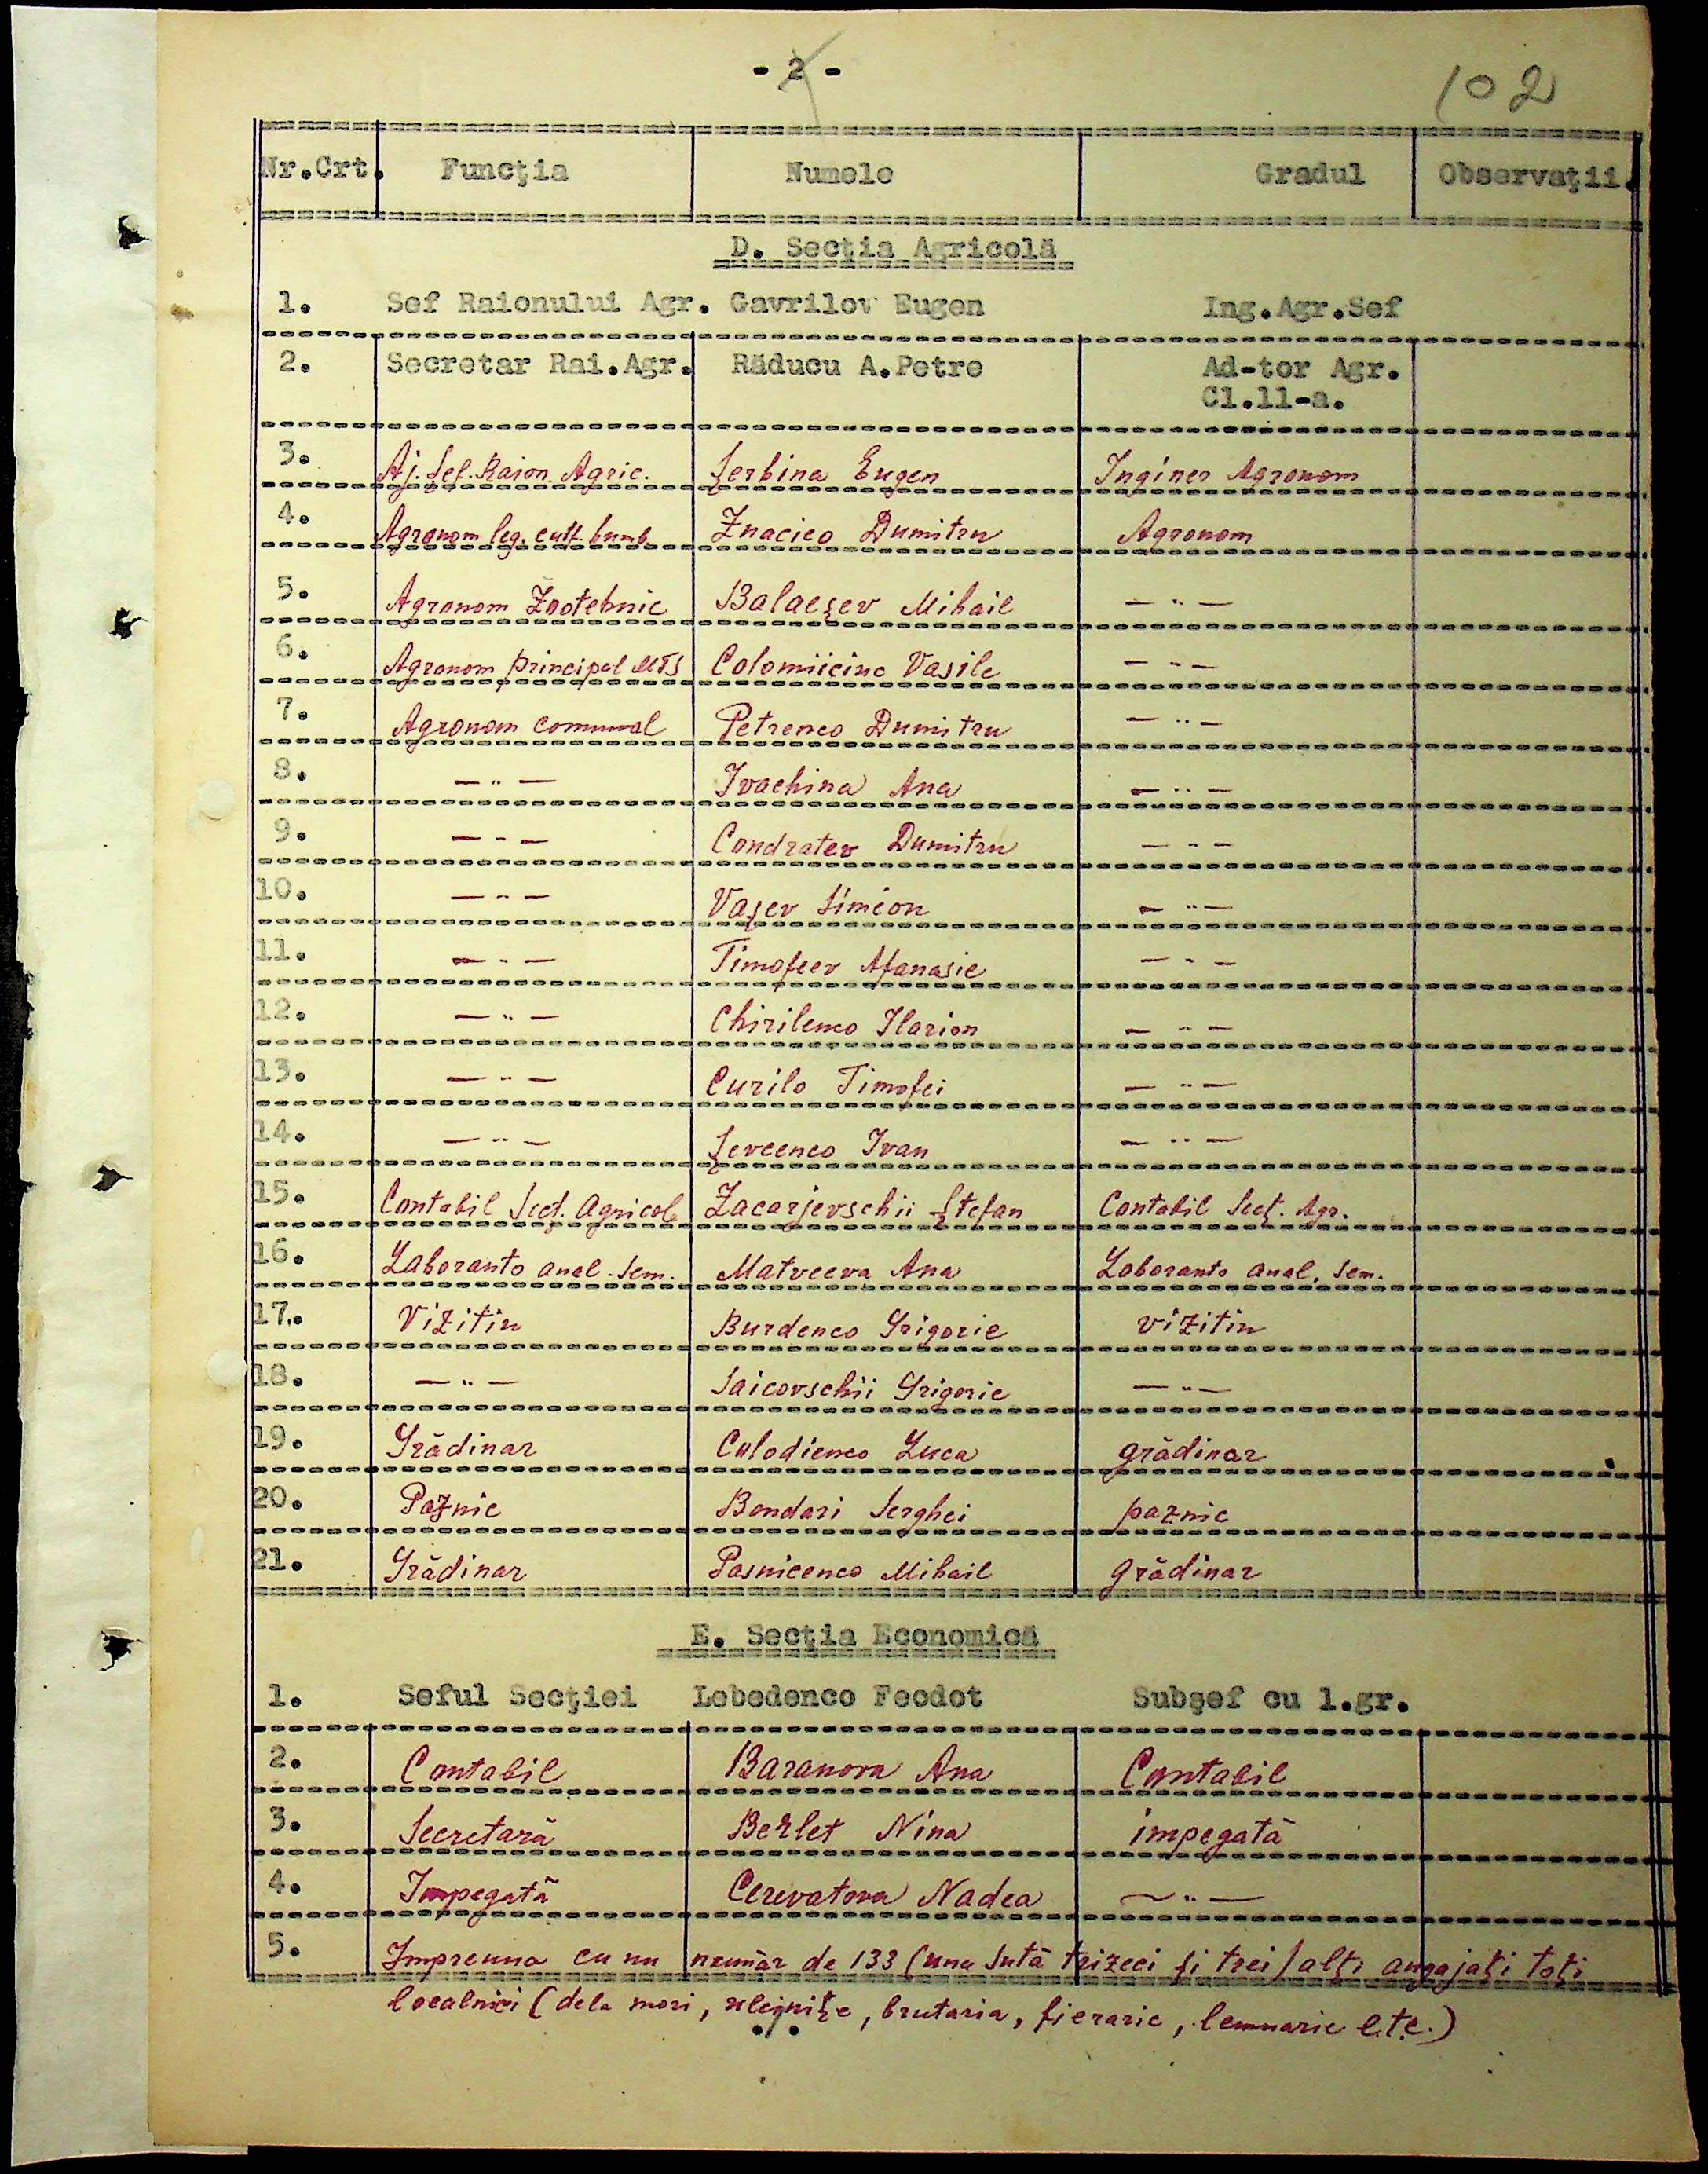 - 2 -
102
Nr.Crt. Funcţia Numele Gradul Observaţii.
D. Secţia Agricolă
1. Sef Raionului Agr. Gavrilov Eugen Ing.Agr.Sef
2. Secretar Rai.Agr. Răducu A.Petre Ad-tor Agr.
Cl.11-a.
3. Aj. Şef. Raion. Agric. Şerbina Eugen Inginer Agronom
4. Agronom leg. cult. bumb. Znacico Dumitru Agronom
5. Agronom Zootehnic Balaeşev Mihail — " —
6. Agronom principal MTS Colomiicinc Vasile — " —
7. Agronom comunal Petrenco Dumitru — " —
8. — " — Ivachina Ana — " —
9. — " — Condratev Dumitru — " —
10. — " — Vaşev Simeon — " —
11. — " — Timofeev Afanasie — " —
12. — " — Chirilenco Ilarion — " —
13. — " — Curilo Timofei — " —
14. — " — Şevcenco Ivan — " —
15. Contabil Secţ. Agricol Zacarjevschii Ştefan Contabil Secţ. Agr.
16. Laboranto anal. sem. Matveeva Ana Laboranto anal. sem.
17. Vizitiu Burdenco Grigorie vizitiu
18. — " — Saicovschii Grigorie — " —
19. Grădinar Colodienco Luca grădinar
20. Paznic Bondari Serghei paznic
21. Grădinar Pasnicenco Mihail grădinar
E. Secţia Economică
1. Seful Secţiei Lebedenco Feodot Subşef cu 1.gr.
2. Contabil Baranova Ana Contabil
3. Secretară Berlet Nina impegată
4. Impegată Cerevatova Nadea — " —
5. Impreuna cu un număr de 133 (una sută trizeci şi trei) alţi angajaţi toţi
localnici (dela mori, uleiniţe, brutaria, fierarie, lemnarie e.t.c.)
./.